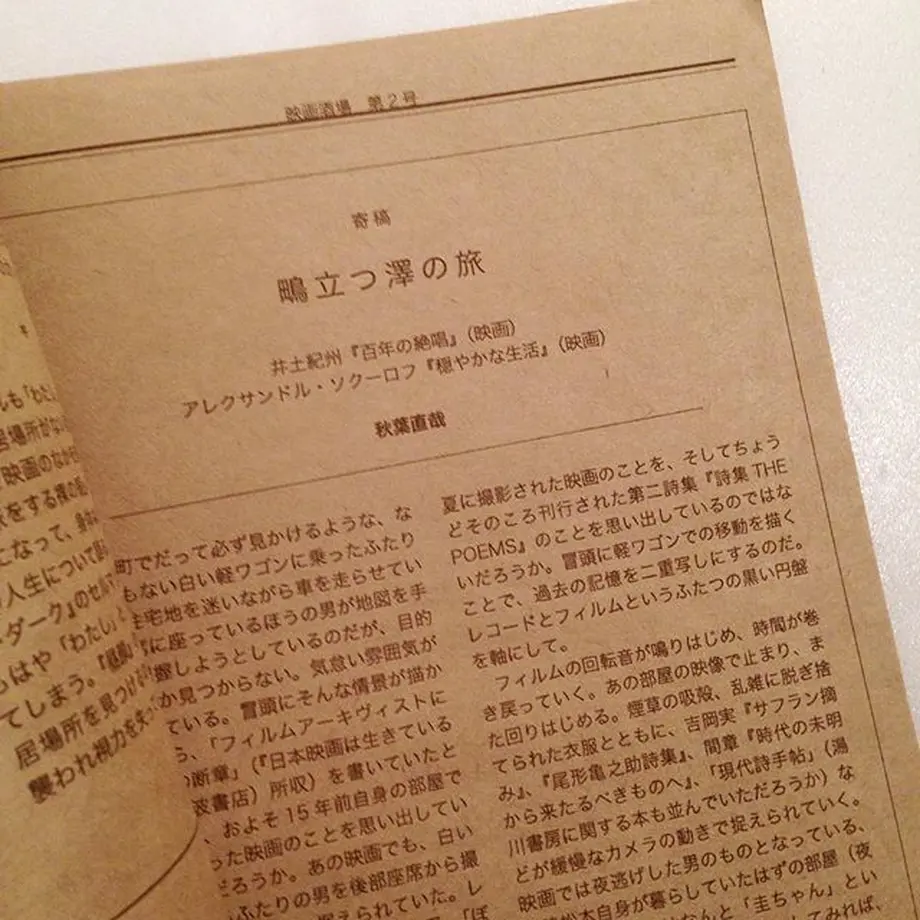 映画酒場 第2号
寄稿
鴫立つ澤の旅
井土紀州『百年の絶唱』（映画）
アレクサンドル・ソクーロフ『穏やかな生活』（映画）
秋葉直哉
町でだって必ず見かけるような、な
もない白い軽ワゴンに乗ったふたり
宅地を迷いながら車を走らせてい
に座っているほうの男が地図を手
握しようとしているのだが、目的
か見つからない。気怠い雰囲気が
ている。冒頭にそんな情景が描か
ら、「フィルムアーキヴィストに
断章」（『日本映画は生きている
波書店）所収）を書いていたと
、およそ15年前自身の部屋で
った映画のことを思い出してい
だろうか。あの映画でも、白い
ふたりの男を後部座席から撮
捉えられていた。レ
夏に撮影された映画のことを、そしてちょう
どそのころ刊行された第二詩集『詩集 THE
POEMS』のことを思い出しているのではな
いだろうか。冒頭に軽ワゴンでの移動を描く
ことで、過去の記憶を二重写しにするのだ。
レコードとフィルムというふたつの黒い円盤
を軸にして。
フィルムの回転音が鳴りはじめ、時間が巻
き戻っていく。あの部屋の映像で止まり、ま
た回りはじめる。煙草の吸殻、乱雑に脱ぎ捨
てられた衣服とともに、吉岡実『サフラン摘
み』、『尾形亀之助詩集』、間章『時代の未明
から来たるべきものへ』、「現代詩手帖」（湯
川書房に関する本も並んでいただろうか）な
どが緩慢なカメラの動きで捉えられていく。
映画では夜逃げした男のものとなっている、
松本自身が暮らしていたはずの部屋（夜
なんと「圭ちゃん」とい
みれば、
ルも「わたし
居場所がない
映画のなか
をする
になって、
人生について
ダーク』のセル
はや「わたし」
てしまう。
居場所を見つけ
襲われ視力を失